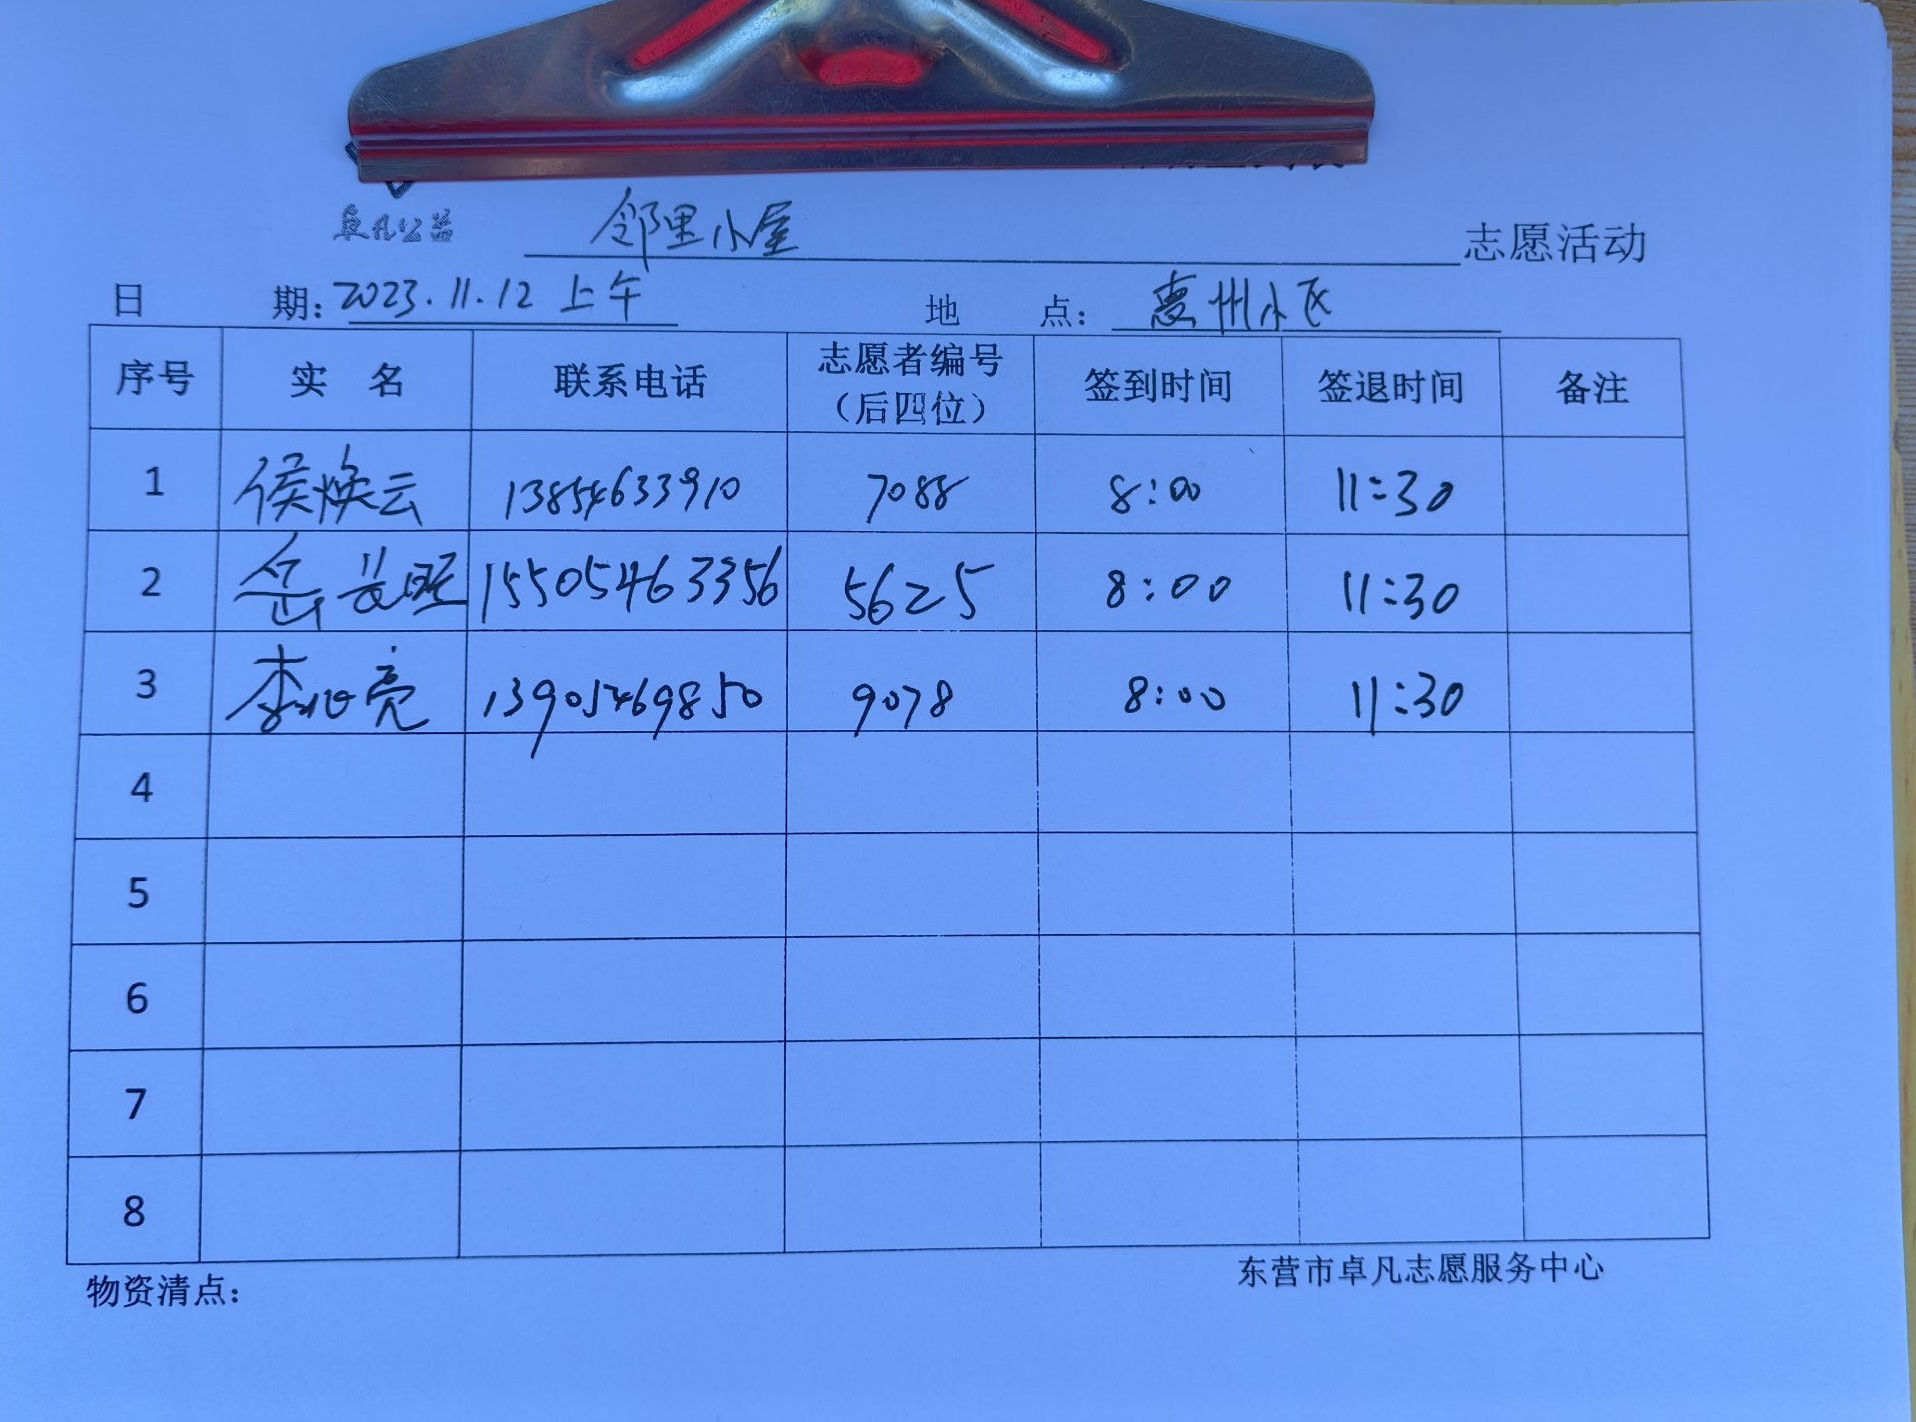 卓凡公益
邻里小屋 志愿活动
日 期: 2023.11.12 上午 地 点: 惠州小区
序号 实 名 联系电话 志愿者编号（后四位） 签到时间 签退时间 备注
1 侯焕云 13854633910 7088 8:00 11:30
2 岳长旺 15505463356 5625 8:00 11:30
3 李 亮 13905469850 9078 8:00 11:30
4
5
6
7
8
物资清点: 东营市卓凡志愿服务中心